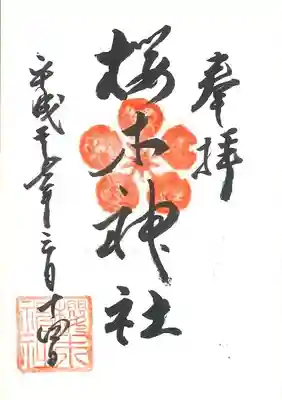 奉拝
桜木神社
平成 年三月十四日
櫻木
神社